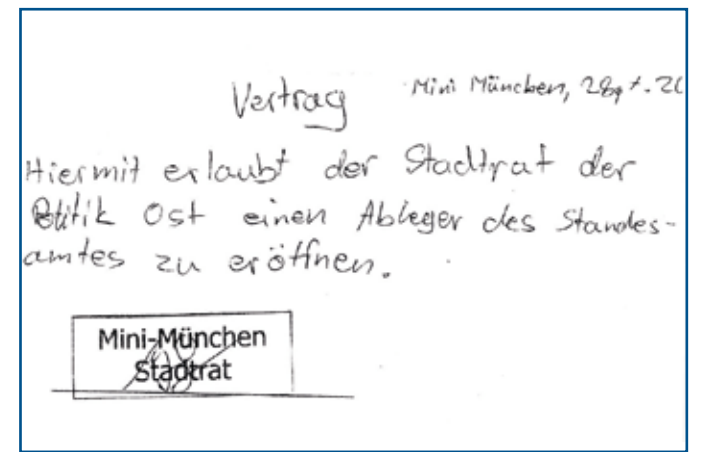 Vertrag Mini München,
Hiermit erlaubt der Stadtrat der
Ost einen Ableger des Standes-
amtes zu eröffnen.
Mini-München
Stadtrat